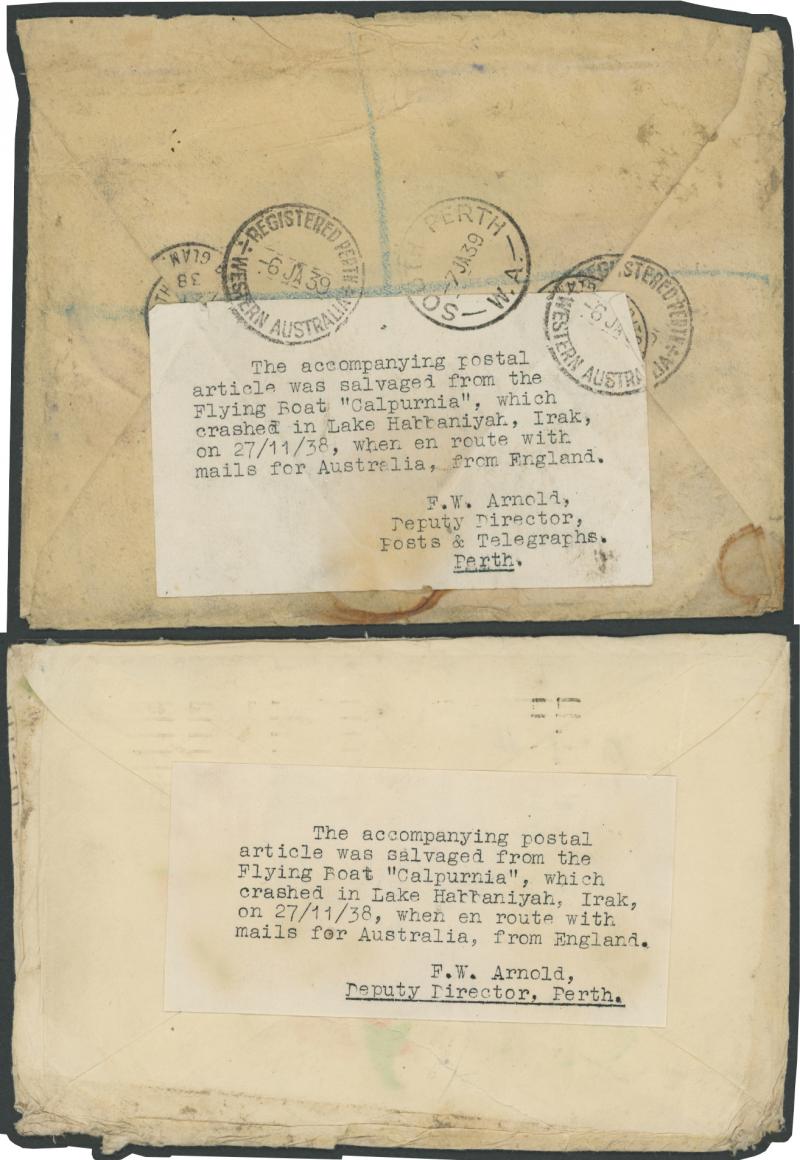 GLAN.
38
REGISTERED PERTH
-6 JA 39
WESTERN AUSTRALIA
PERTH
-7 JA 39
W.A.
REGISTERED PERTH
-6 JA
WESTERN AUSTRALIA
The accompanying postal
article was salvaged from the
Flying Boat "Calpurnia", which
crashed in Lake Habbaniyah, Irak,
on 27/11/38, when en route with
mails for Australia, from England.
F.W. Arnold,
Deputy Director,
Posts & Telegraphs.
Perth.
The accompanying postal
article was salvaged from the
Flying Boat "Calpurnia", which
crashed in Lake Habbaniyah, Irak,
on 27/11/38, when en route with
mails for Australia, from England.
F.W. Arnold,
Deputy Director, Perth.